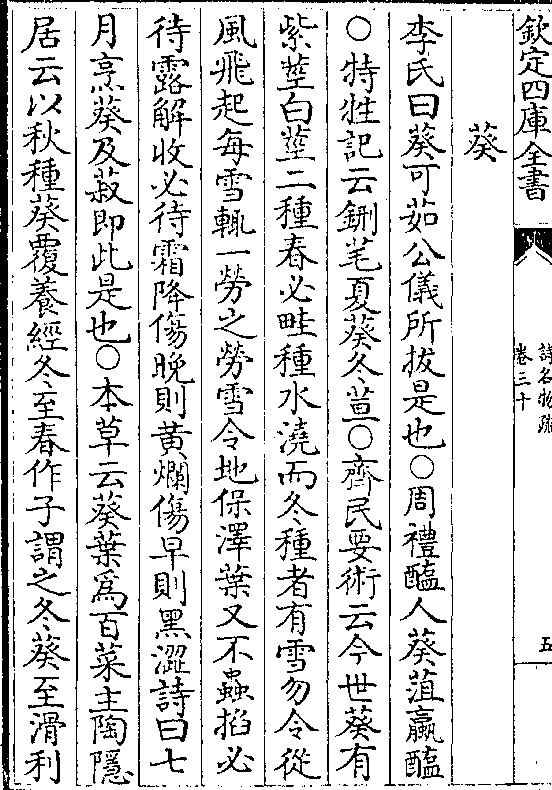 欽定四庫全書
詩名物疏
卷三十
五
葵
李氏曰葵可茹公儀所拔是也○周禮醢人葵菹蠃醢
○特牲記云鉶芼夏葵冬荁○齊民要術云今世葵有
紫莖白莖二種春必畦種水澆而冬種者有雪勿令從
風飛起每雪輒一勞之勞雪令地保澤葉又不蟲掐必
待露解收必待霜降傷晚則黃爛傷早則黑澀詩曰七
月烹葵及菽即此是也○本草云葵葉為百菜主陶隱
居云以秋種葵覆養經冬至春作子謂之冬葵至滑利